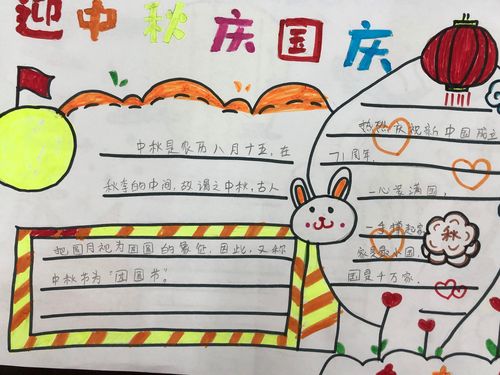 迎中秋庆国庆
中秋是农历八月十五,在
秋季的中间,故谓之中秋,古人
把圆月视为团圆的象征,因此,又称
中秋节为“团圆节”。
热烈庆祝新中国成立
71周年
一心装满国,
一手撑起家
家是最小国
国是千万家.
秋